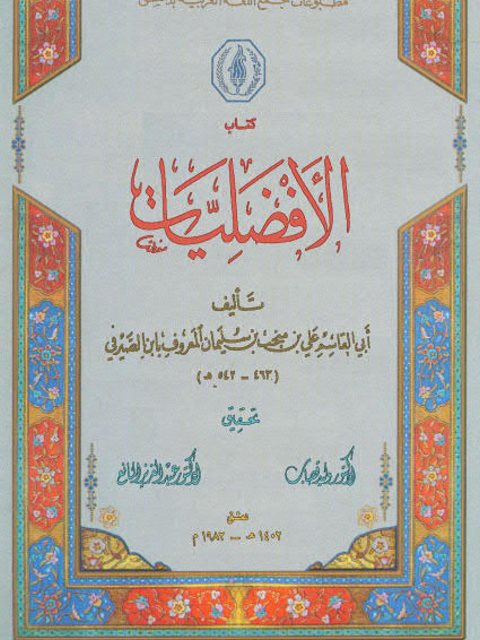 مطبوعات مجمع اللغة العربية بدمشق
كتاب
الأَفْضَلِيَّات
تأليف
أبي القاسم علي بن منجب بن سليمان المعروف بابن الصيرفي
(٤٦٣ - ٥٤٢ هـ)
تحقيق
الدكتور وليد قصاب
الدكتور عبد العزيز المانع
دمشق
١٤٠٢ هـ - ١٩٨٢ م